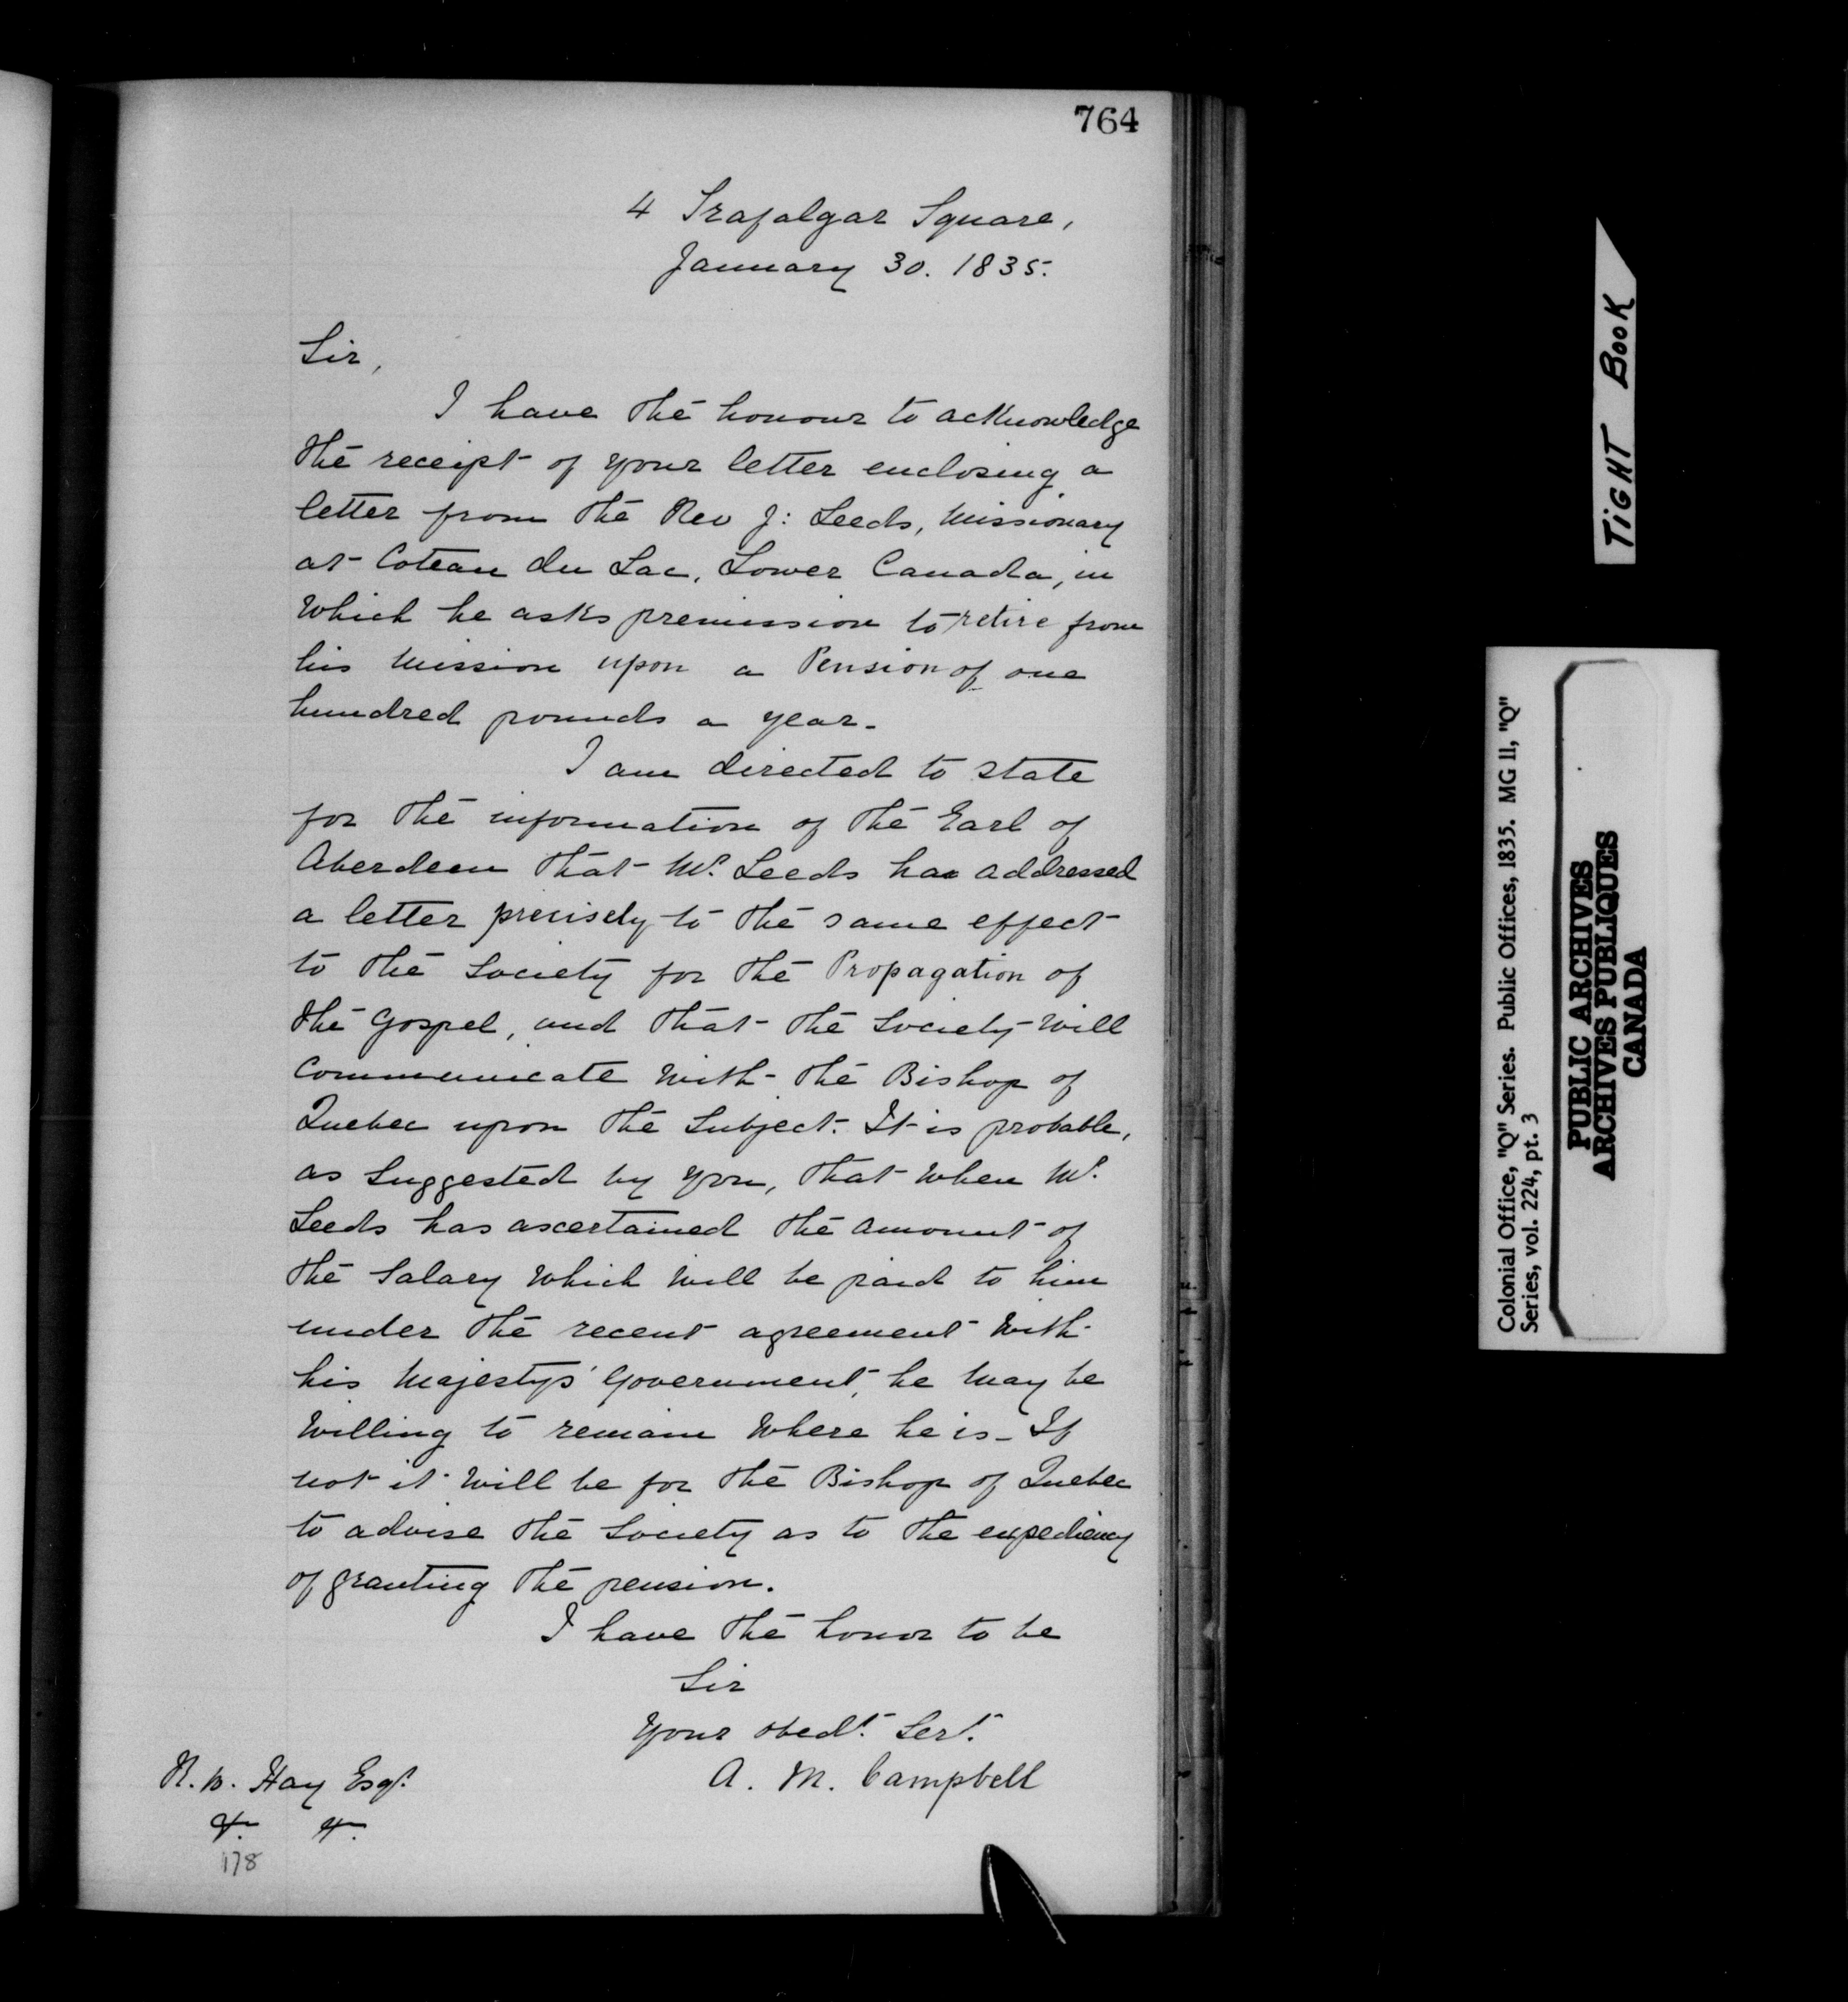 764
4 Trafalgar Square,
January 30. 1835.
Sir,
I have the honour to acknowledge
the receipt of your letter enclosing a
letter from the Rev J: Leeds, Missionary
at Coteau du Lac, Lower Canada, in
which he asks premission to retire from
his Mission upon a Pension of one
hundred pounds a year.
I am directed to state
for the information of the Earl of
Aberdeen that Mr. Leeds has addressed
a letter precisely to the same effect
to the Society for the Propagation of
the Gospel, and that the Society will
Communicate with the Bishop of
Quebec upon the Subject. It is probable,
as Suggested by you, that when Mr.
Leeds has ascertained the amount of
the Salary which will be paid to him
under the recent agreement with
his Majestys' Government, he may be
willing to remain where he is - If
not it will be for the Bishop of Quebec
to advise the Society as to the expediency
of granting the pension.
I have the honor to be
Sir
Your obedt. Sert.
A. M. Campbell
R. W. Hay Esqr.
&c. &c.
178
TIGHT BOOK
Colonial Office, "Q" Series. Public Offices, 1835. MG 11, "Q"
Series, vol. 224, pt. 3
PUBLIC ARCHIVES
ARCHIVES PUBLIQUES
CANADA